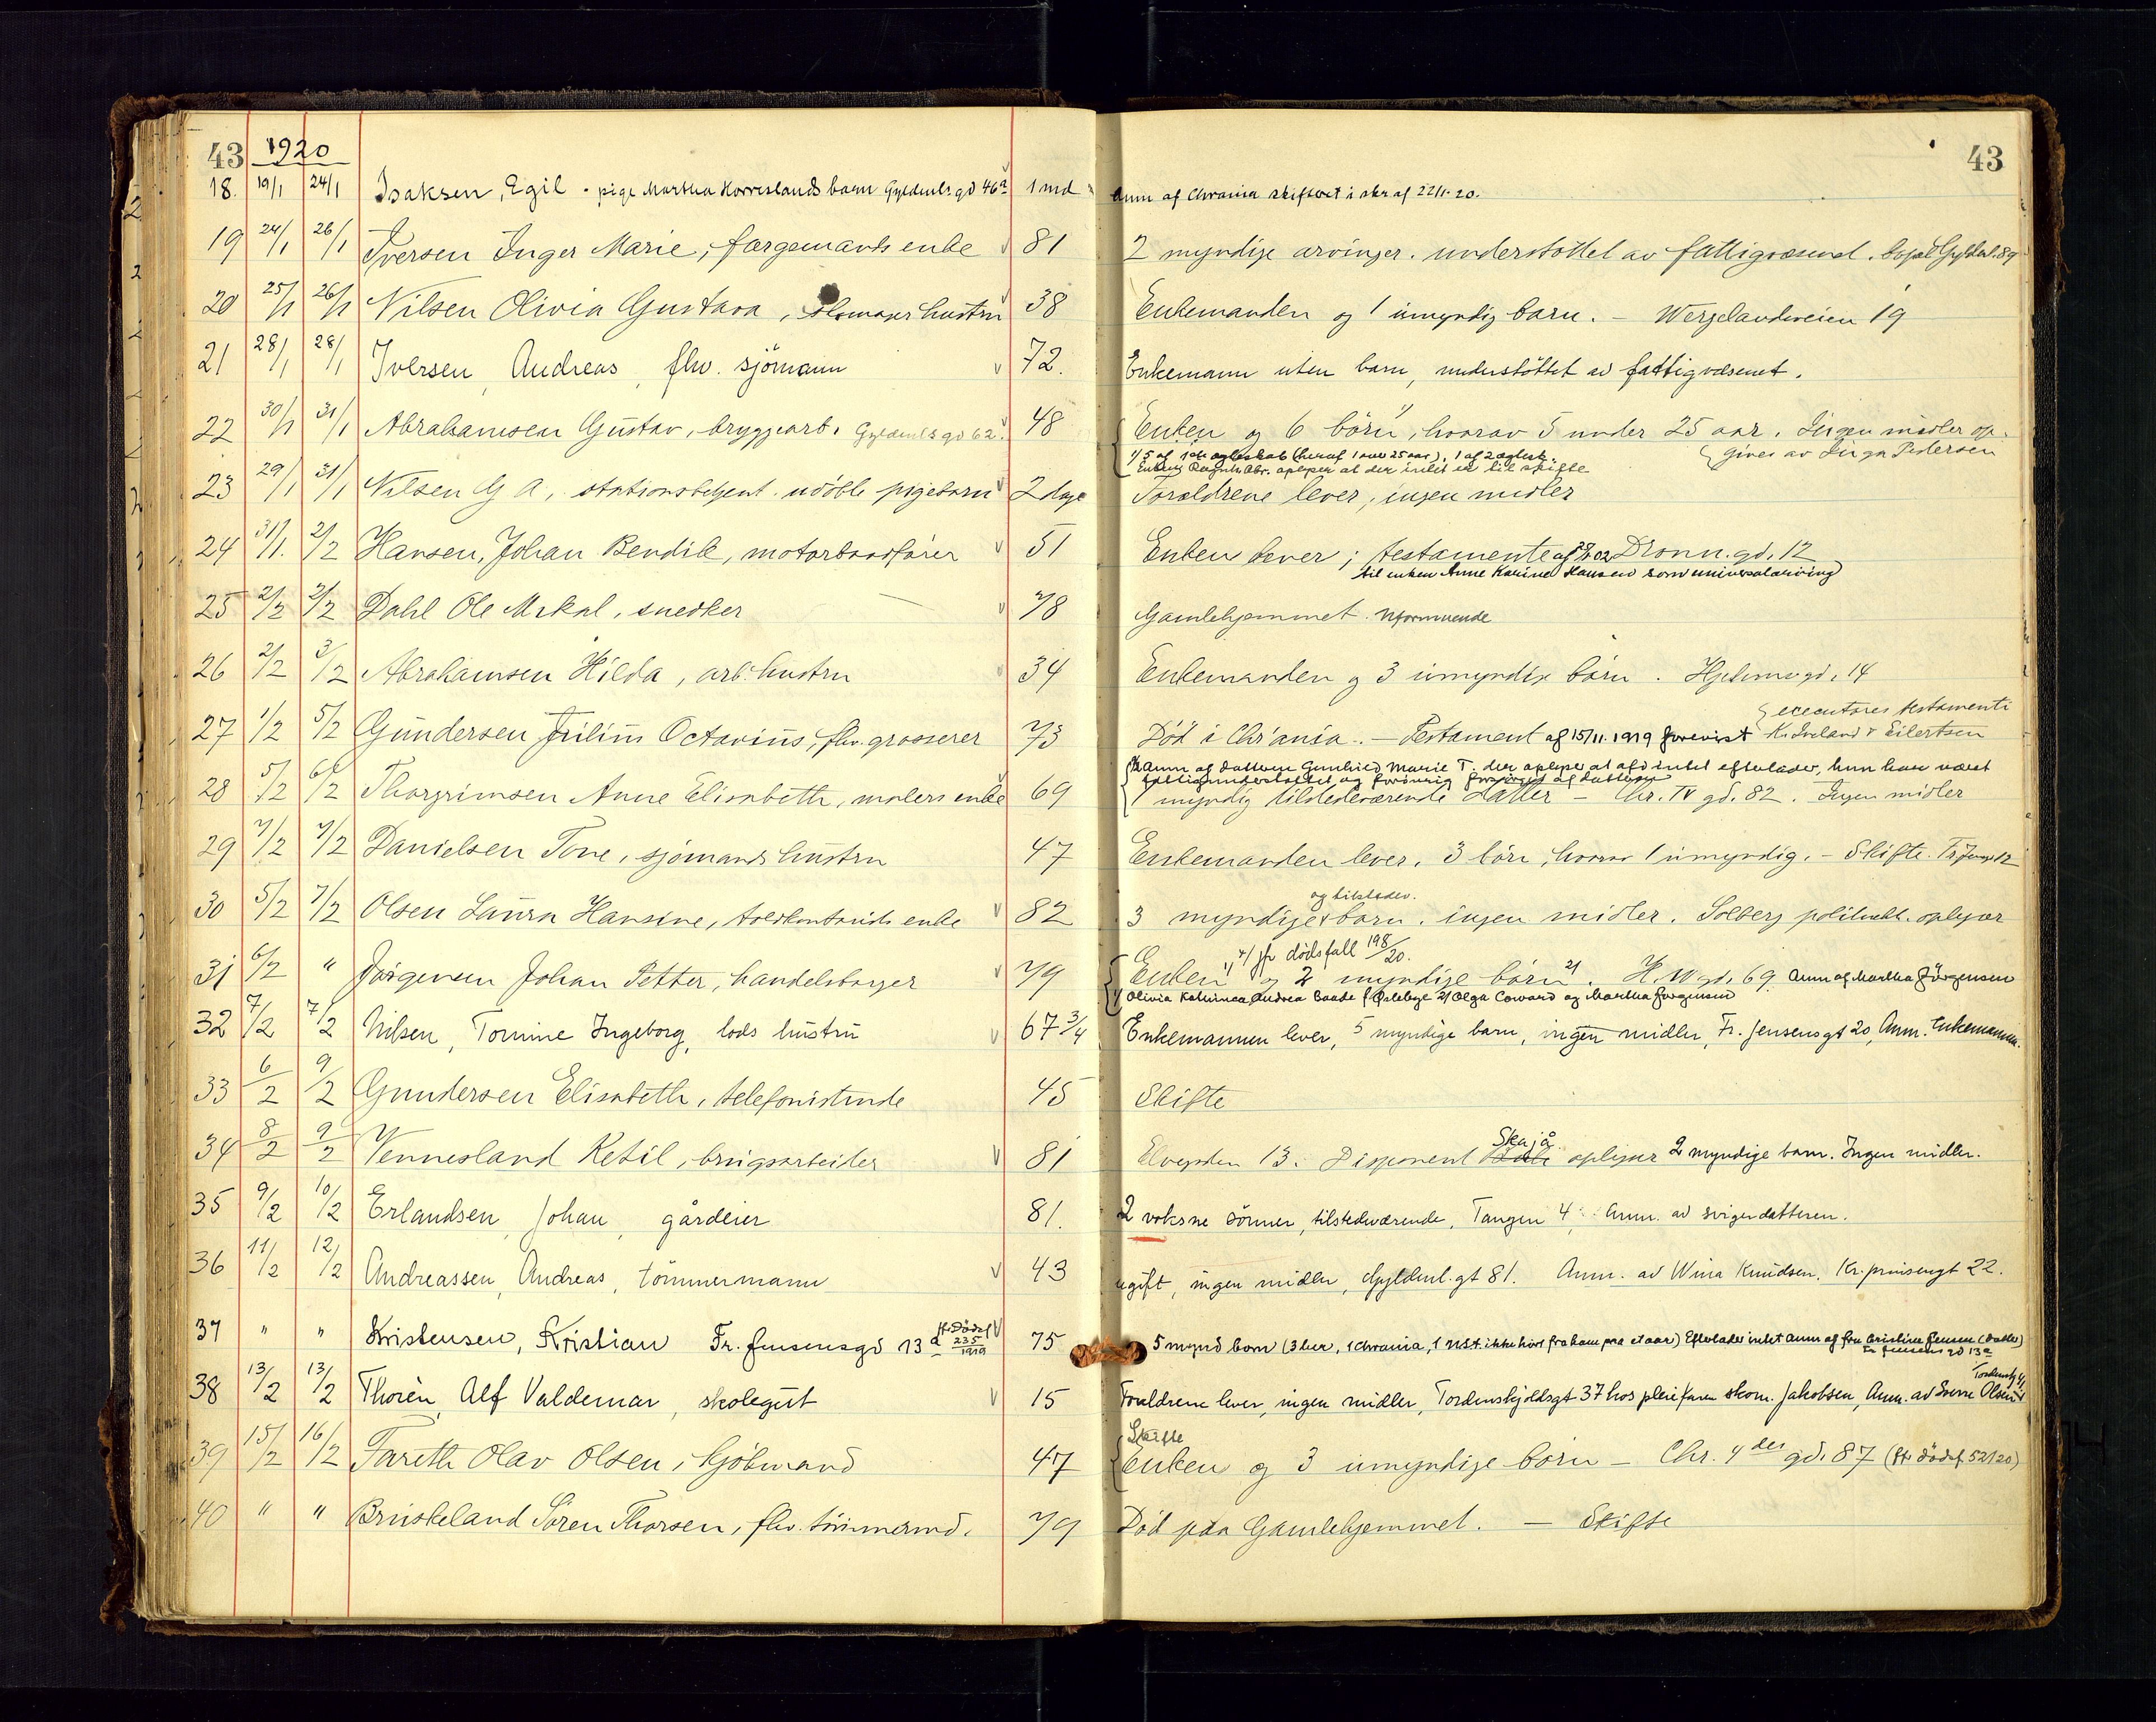 43 1920
43
18. 19/1 24/1 Isaksen, Egil - pige Martha Korreslands barn Gyldenls. gd 46a 1 md Anm af Chrania skifteret i skr af 22/1-20.
19 24/1 26/1 Iversen Inger Marie, færgemands enke 81 2 myndige arvinger. understøttet av fattigvæsenet. Gyldenl. 89
20 25/1 26/1 Nilsen Olivia Gustava, hustru 38 Enkemanden og 1 umyndig barn. - Wergelandsveien 19
21 28/1 28/1 Iversen, Andreas, fhv. sjömann 72. Enkemann uten barn, understöttet av fattigvæsenet.
22 30/1 31/1 Abrahamsen Gustav, bryggearb. Gyldenls gd 62. 48 Enken og 6 börn 1/, hvorav 5 under 25 aar. Ingen midler op-
1/ 5 af 1ste egteskab (heraf 1 over 25 aar), 1 af 2 egtesk. gives av Inga Pedersen
Enken Abr. oplyser at der intet er til skifte
23 29/1 31/1 Nilsen G A, stationsbetjent. udöbt pigebarn 2 dage Forældrene lever, ingen midler
24 31/1. 2/2 Hansen, Johan Bendik, motorbaadförer 51 Enken lever; testamente af 02 Dronn. gd. 12
til enken Anne Karine Hansen som universalarving
25 2/2 2/2 Dahl Ole Mikal, snedker 78 Gamlehjemmet. Uformuende
26 2/2 3/2 Abrahamsen Hilda, arb. hustru 34 Enkemanden og 3 umyndige börn. Hjelmsgd. 14
27 1/2 5/2 Gundersen Julius Octavius, fhv. grosserer 73 Död i Chr'ania. - Testament af 15/11. 1919 forevist executores testamenti
K. Sveland & Eilertsen
28 5/2 6/2 Thorgrimsen Anne Elisabeth, malers enke 69 Anm af datteren Gunhild Marie T. der oplyser at afd intet efterlader, hun har været
fattigunderstöttet og forövrig forsörget af datteren
1 myndig tilstedeværende datter - Chr. IV gd. 82. Ingen midler
29 7/2 7/2 Danielsen Tone, sjömands hustru 47 Enkemanden lever. 3 börn, hvorav 1 umyndig. - Skifte.
30 5/2 7/2 Olsen Laura Hansine, enke 82 3 myndige og tilstedev. barn. ingen midler. Solberg politivakt. oplyser
31 6/2 " Jörgensen Johan Petter, handelsborger 79 Enken 1/ og 2 myndige börn 2/. H W gd. 69 Anm af Martha Jörgensen
*/ jfr dödsfall 198/20.
1/ Olivia Kathinca Andrea Baade f. 2/ Olga Coward og Martha Jörgensen
32 7/2 7/2 Nilsen, Tomine Ingeborg, lods hustru 67 3/4 Enkemannen lever, 5 myndige barn, ingen midler, Fr. Jensensgt 20, Anm. Enkemannen.
33 6/2 9/2 Gundersen Elisabeth, telefonistinde 45 Skifte
34 8/2 9/2 Vennesland Ketil, brugsarbeider 81 Elvegaden 13. Disponent Skajå oplyser 2 myndige barn. Ingen midler.
35 9/2 10/2 Erlandsen, Johan, gårdeier 81. 2 voksne sönner, tilstedeværende, Tangen 4. Anm. av svigerdatteren.
36 11/2 12/2 Andreassen, Andreas, tömmermann 43 ugift, ingen midler, Gyldenl. gt 81. Anm. av Wina Knudsen, Kr. prinsensgt 22.
37 " " Kristensen, Kristian Fr. Jensensgd 13a fr. Dödsf 235/1919 75 5 mynd born (3 her, 1 Chrania, 1 U.S.A. ikke hört fra ham paa et aar) Efterlader intet Anm af fru Cristine Jensen (datter)
Fr Jensens gd 13a
38 13/2 13/2 Thorèn, Alf Valdemar, skolegut 15 Foreldrene lever, ingen midler, Tordenskjoldsgt 37 hos pleiefaren skom. Jakobsen, Anm. av Sverre Olsen
39 15/2 16/2 Fareth Olav Olsen, kjöbmand 47 Skifte
Enken og 3 umyndige börn - Chr. 4des gd. 87 (fr. dödsf 52/20)
40 " " Bruskeland Sören Thorsen, fhv. tömmermd. 79 Död paa Gamlehjemmet. - Skifte